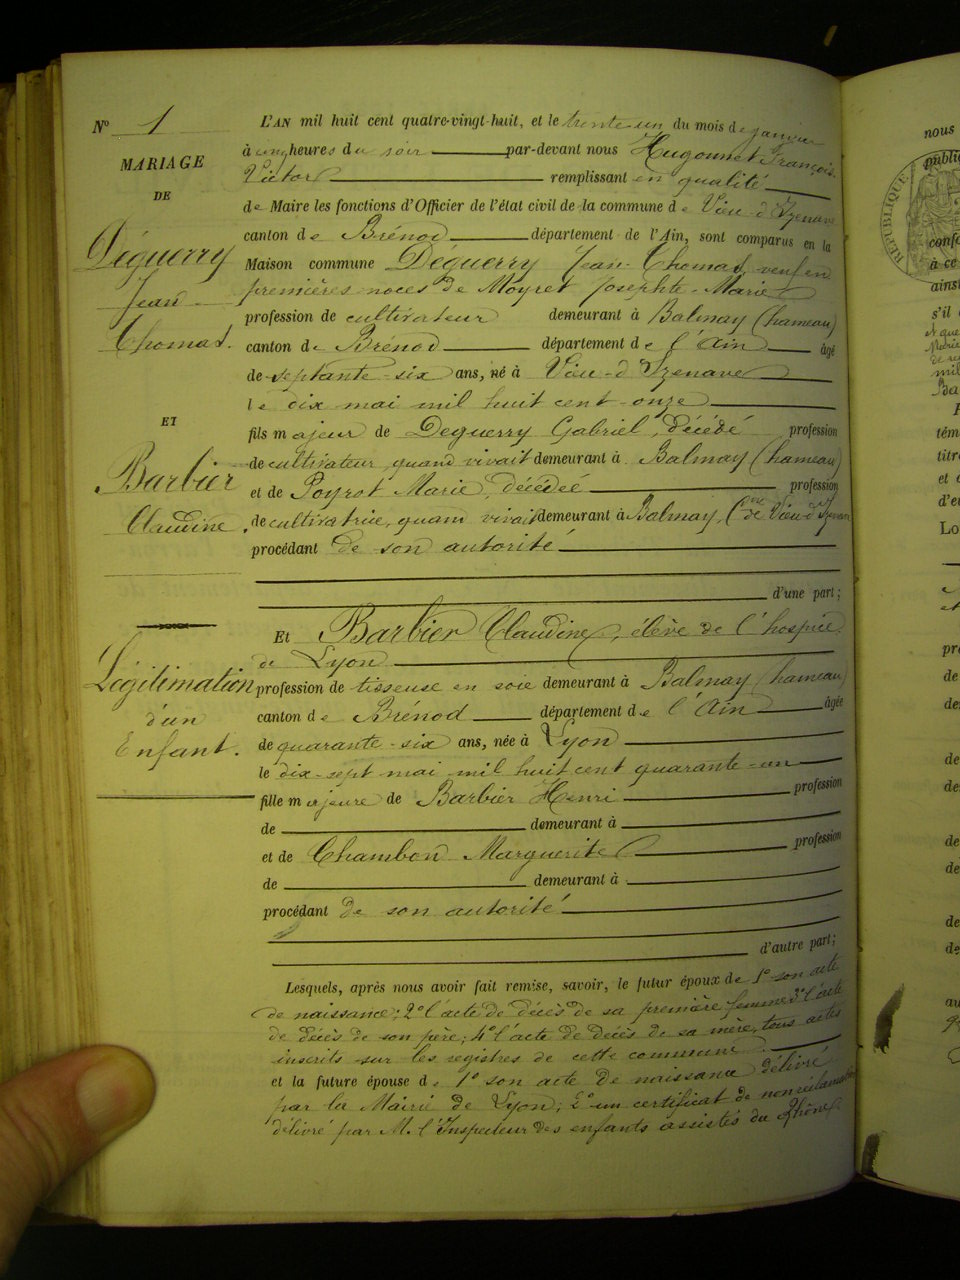 N° 1
MARIAGE
DE
Déguerry
Jean
Thomas.
ET
Barbier
Claudine.
Légitimation
d'un
Enfant.
L'AN mil huit cent quatre-vingt-huit, et le trente-un du mois de janvier
à cinq heures du soir par-devant nous Hugonnet François-
Victor remplissant en qualité
de Maire les fonctions d'Officier de l'état civil de la commune de Vieu-d'Izenave
canton de Brénod département de l'Ain, sont comparus en la
Maison commune Déguerry Jean-Thomas, veuf en
premières noces de Moyret Josephte-Marie
profession de cultivateur demeurant à Balmay (hameau)
canton de Brénod département de l'Ain âgé
de septante-six ans, né à Vieu-d'Izenave
le dix mai mil huit cent onze
fils majeur de Deguerry Gabriel, décédé profession
de cultivateur quand vivait demeurant à Balmay (hameau)
et de Poyrot Marie, décédée profession
de cultivatrice, quand vivait demeurant à Balmay, Cne de Vieu d'Izenave
procédant de son autorité
d'une part;
Et Barbier Claudine, élève de l'hospice
de Lyon
profession de tisseuse en soie demeurant à Balmay (hameau)
canton de Brénod département de l'Ain âgée
de quarante-six ans, née à Lyon
le dix-sept mai mil huit cent quarante-un
fille majeure de Barbier Henri profession
de demeurant à
et de Chambon Marguerite profession
de demeurant à
procédant de son autorité
d'autre part;
Lesquels, après nous avoir fait remise, savoir, le futur époux de 1° son acte
de naissance; 2° l'acte de décès de sa première femme 3° l'acte
de décès de son père; 4° l'acte de décès de sa mère, tous actes
inscrits sur les registres de cette commune
et la future épouse de 1° son acte de naissance délivré
par la Mairie de Lyon; 2° un certificat de non réclamation
délivré par M. l'Inspecteur des enfants assistés du Rhône
RÉPUBLIQUE
nous
publi
confo
à ce
ainsi
s'il
mil
tém
titr
et
d'e
Lo
pr
de
de
de
de
de
de
de
de